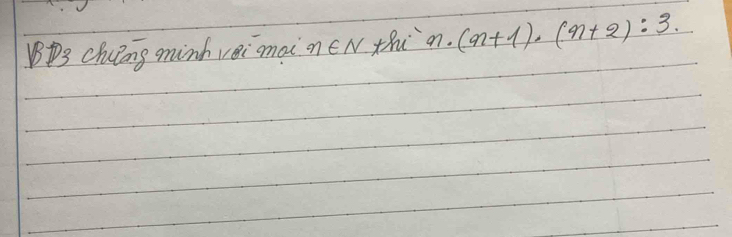 VD3 chứng minh với mọi n ∈ N thì n.(n+1).(n+2) ⋮ 3.